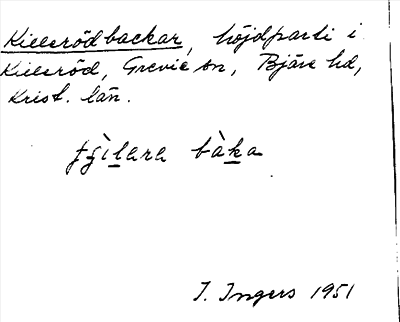 Killeröd backar, höjdparti i
Killeröd, Grevie sn, Bjäre hd,
Krist. län.
bàka
I. Ingers 1951